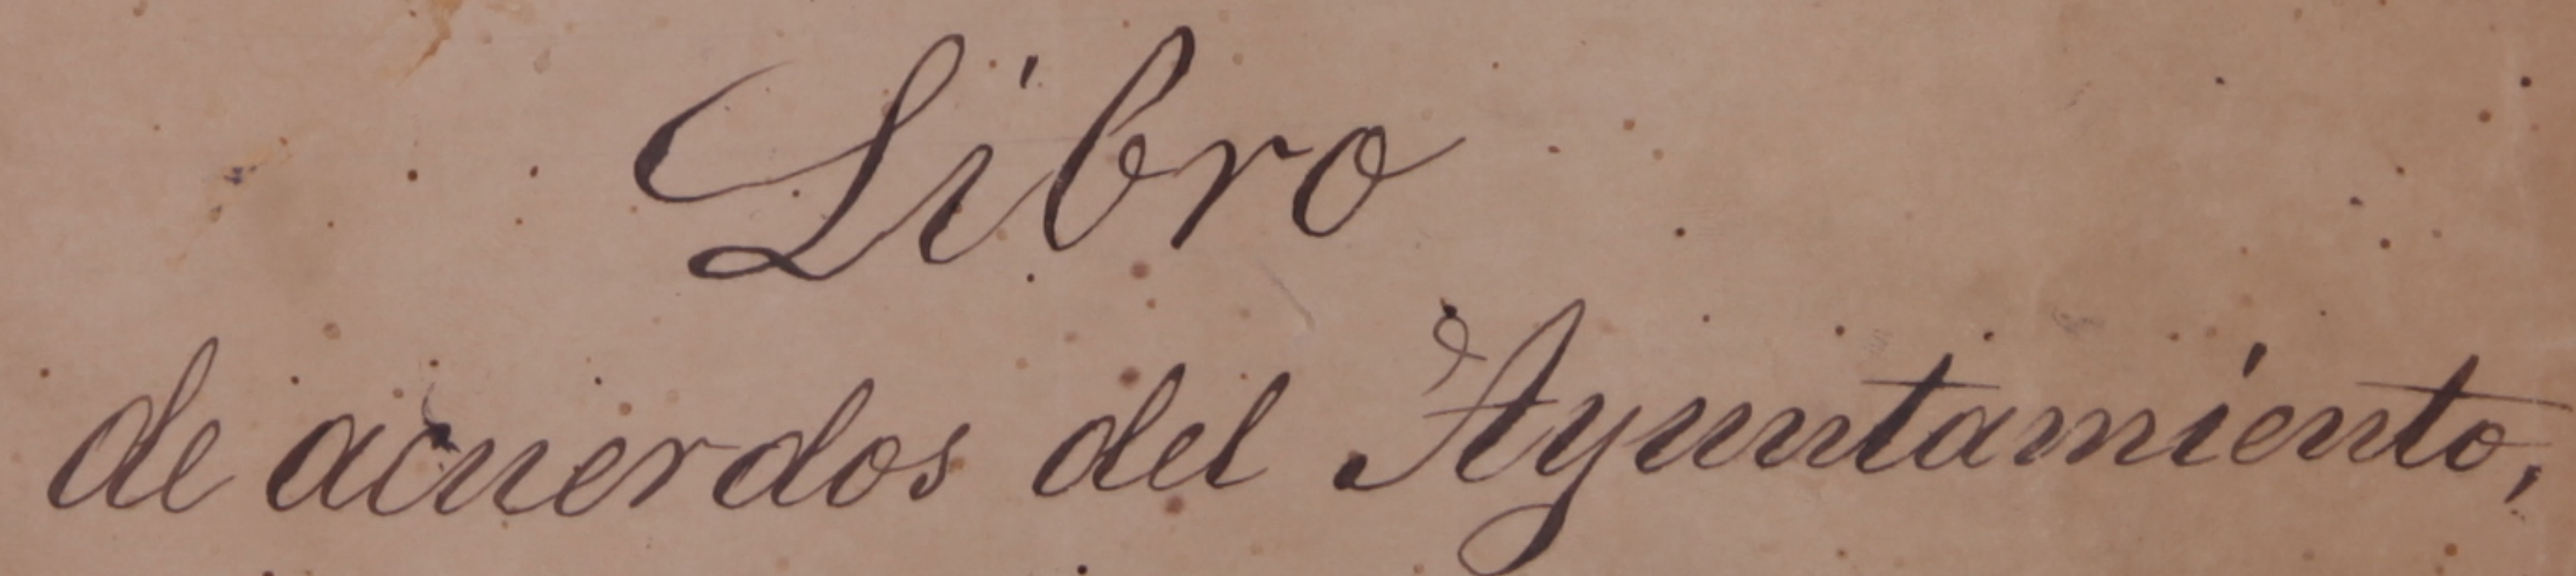 Libro
de acuerdos del Ayuntamiento,